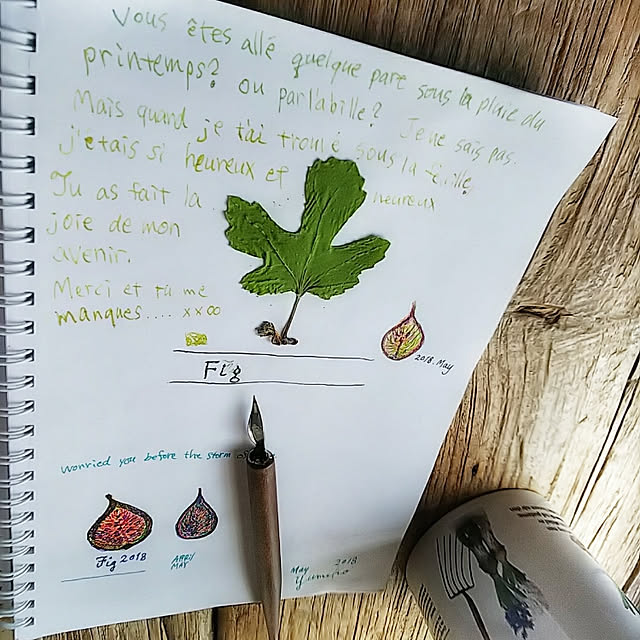 Vous êtes allé quelque part sous la pluie du
printemps? ou parl'abille? Je ne sais pas.
Mais quand je t'ai trouvé sous la feuille,
j'etais si heureux et heureux
Tu as fait la
joie de mon
avenir.
Merci et tu me
manques.... xxoo
2018. May
Fig
worried you before the storm
Fig 2018
APRIL
MAY
May 2018